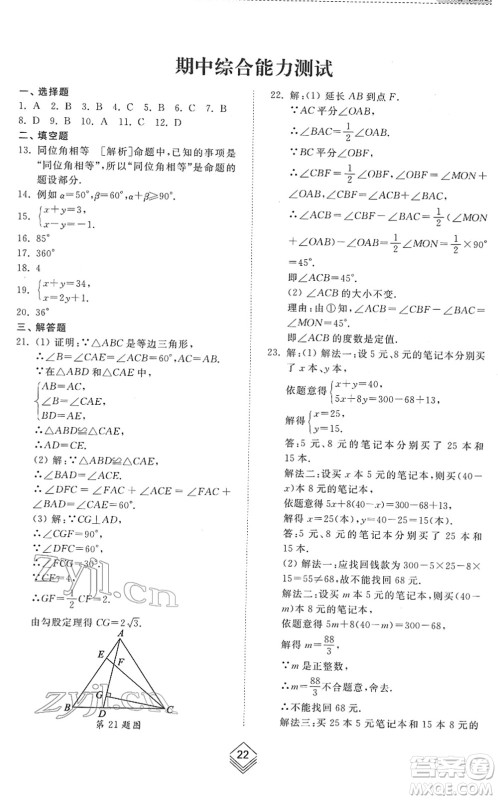 期中综合能力测试
一、选择题
1. A 2. D 3. B 4. A 5. C 6. A 7. C
8. D 9. D 10. B 11. A 12. C
二、填空题
13. 同位角相等 [解析]命题中,已知的事项是
“同位角相等”,所以“同位角相等”是命题的
题设部分.
14. 例如 α=50°,β=60°,α+β≯90°.
15. {x+y=3,
x-y=-1.
16. 85°
17. 360°
18. 4
19. {x+y=34,
x=2y+1.
20. 36°
三、解答题
21. (1) 证明:∵△ABC 是等边三角形,
∴∠B=∠CAE=∠ACB=60°.
∵在△ABD 和△CAE 中,
{AB=AC,
∠B=∠CAE,
BD=AE,
∴△ABD≌△CAE.
∴AD=CE.
(2) 解:∵△ABD≌△CAE,
∴∠BAD=∠ACE.
∴∠DFC=∠FAC+∠ACE=
∠FAC+∠BAD=60°.
(3) 解:∵CG⊥AD,
∴∠CGF=90°.
∵∠DFC=60°,
∴∠FCG=30°.
∵CF=4,
∴GF=1/2CF=2.
由勾股定理得 CG=2√3.
A
E
F
G
B D C
第 21 题图
22. 解:(1) 延长 AB 到点 F.
∵AC 平分∠OAB,
∴∠CAB=1/2∠OAB.
∵∠CBF=1/2∠ABN,∠ABN=
∠MON+∠OAB,
∴∠CBF=1/2(∠MON+∠OAB).
∵∠ACB=∠CBF-∠CAB,
∴∠ACB=1/2(∠MON+∠OAB)-
1/2∠OAB=1/2∠MON=1/2×90°=
45°.
即∠ACB=45°.
(2) ∠ACB 的大小不变.
理由:由①可知:∠ACB=∠CBF-
∠CAB=1/2∠MON=45°.
即∠ACB 的度数是定值.
23. 解:(1) 解法一:设 5 元、8 元的笔记本分别买
了 x 本、y 本.
依题意得{x+y=40,
5x+8y=300-68+13.
解得{x=25,
y=15.
答:5 元、8 元的笔记本分别买了 25 本和
15 本.
解法二:设买 x 本 5 元的笔记本,则买(40-
x)本 8 元的笔记本.
依题意得 5x+8(40-x)=300-68+13.
解得 x=25(本),y=40-25=15(本).
答:5 元、8 元的笔记本分别买了 25 本和
15 本.
(2) 解法一:应找回钱款为 300-5×25-8×
15=55≠68,故不能找回 68 元.
解法二:设买 m 本 5 元的笔记本,则买(40-
m)本 8 元的笔记本.
依题意得 5m+8(40-m)=300-68.
解得 m=88/3.
∵m 是正整数,
∴m=88/3不合题意,舍去.
∴不能找回 68 元.
解法三:买 25 本 5 元的笔记本和 15 本的
22
zyjl.cn
zyjl.cn
答案圈
MXQE.COM